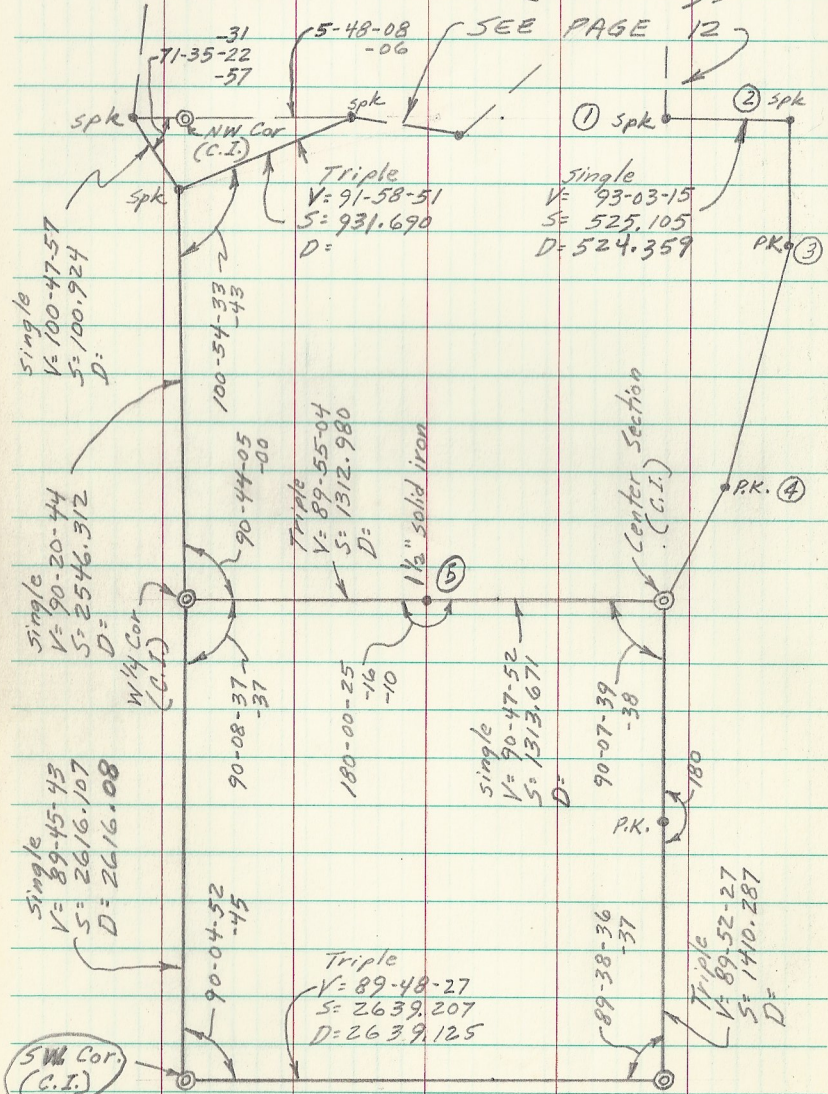 -31
71-35-22
-57
5-48-08
-06
SEE PAGE 12
spk
NW Cor
(C.I.)
spk
① spk
② spk
spk
Triple
V= 91-58-51
S= 931.690
D=
Single
V= 93-03-15
S= 525.105
D= 524.359
P.K. ③
Single
V= 100-47-57
S= 100.924
D=
100-54-33
-43
Single
V= 90-20-44
S= 2546.312
D=
90-44-05
-00
Triple
V= 89-55-04
S= 1312.980
D=
1½" solid iron
⑤
Center Section
(C.I.)
P.K. ④
W¼ Cor
(C.I.)
90-08-37
-37
180-00-25
-16
-10
Single
V= 90-47-52
S= 1313.671
D=
90-07-39
-38
Single
V= 89-45-43
S= 2616.107
D= 2616.08
P.K.
180
90-04-52
-45
Triple
V= 89-48-27
S= 2639.207
D= 2639.125
89-38-36
-37
Triple
V= 89-52-27
S= 1410.287
D=
SW Cor.
(C.I.)